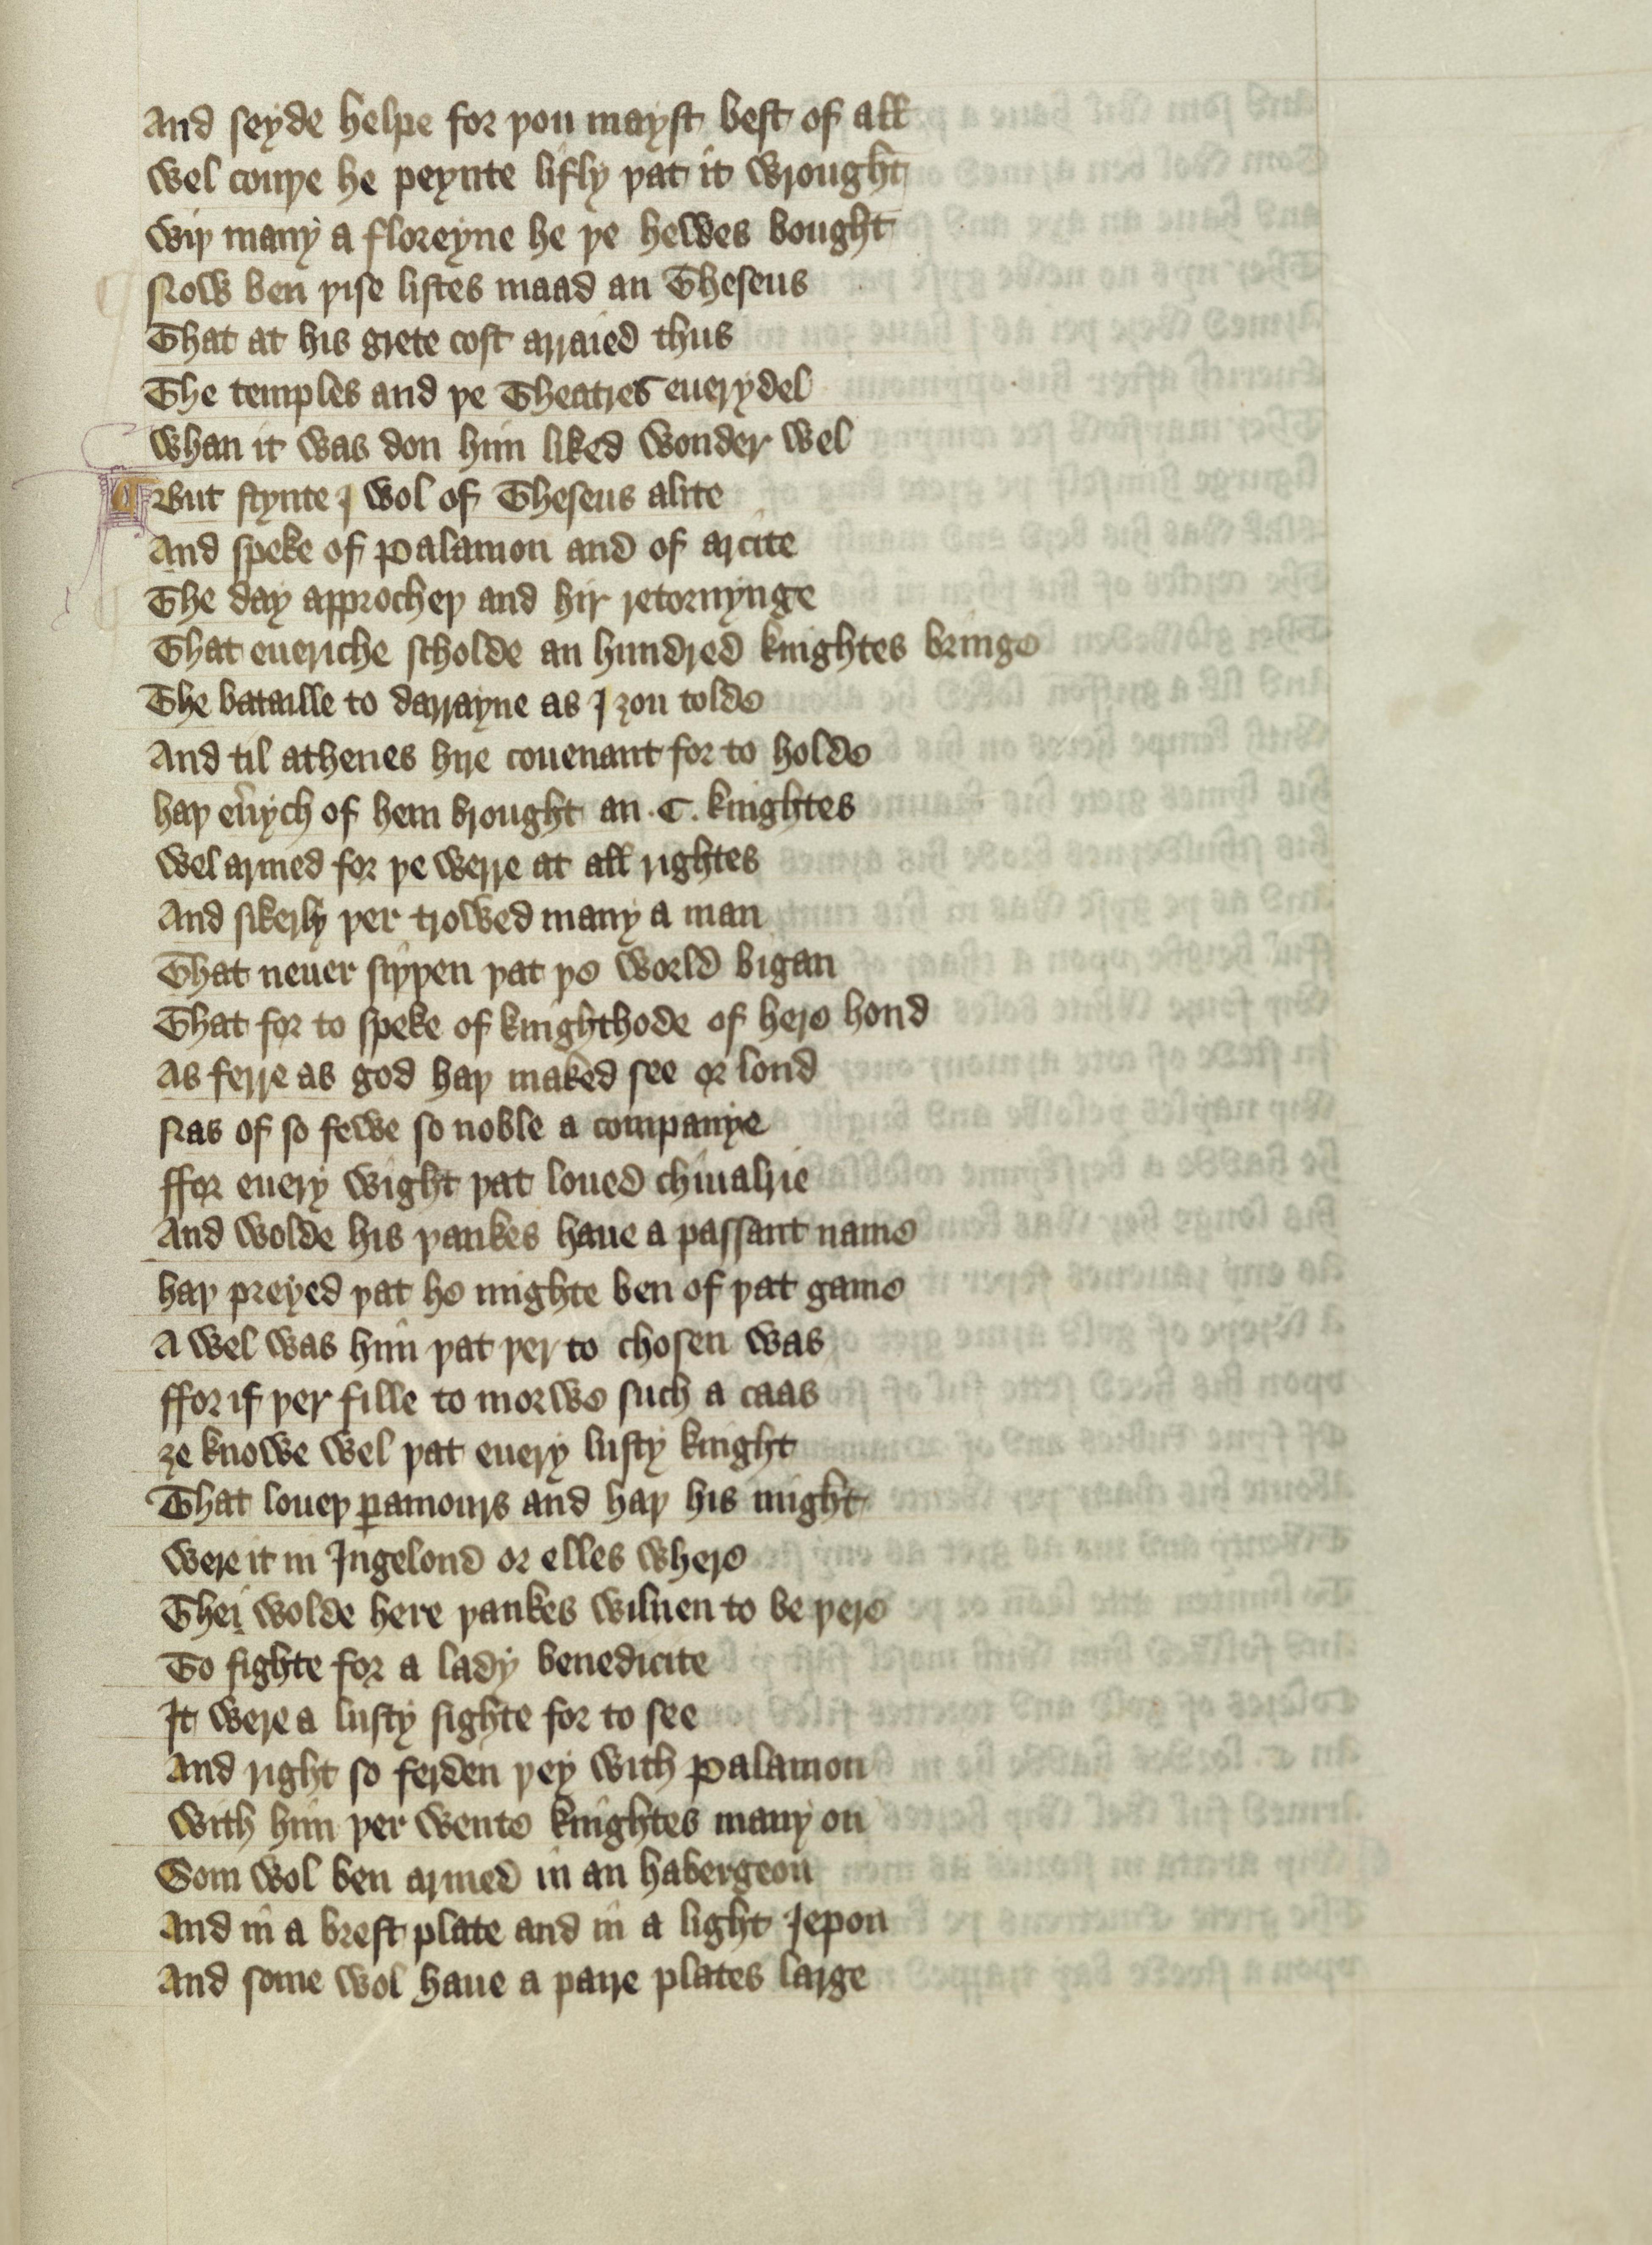 And seyde helpe for þou mayst best of all
Wel couþe he peynte lifly þat it wrought
Wiþ many a floreyne he þe hewes bought
Now ben þise listes maad an Theseus
That at his grete cost arraied thus
The temples and þe Theatres euerydel
Whan it was don him liked wonder wel
¶ But stynte I wol of Theseus alite
And speke of Palamon and of arcite
The day approcheþ and hir retornynge
That eueriche scholde an hundred knightes bringe
The bataille to darrayne as I ȝou tolde
And til athenes hire couenant for to holde
haþ eu'ych of hem brought an .C. knightes
Wel armed for þe werre at all rightes
And sikerly þer trowed many a man
That neuer siþþen þat þe world bigan
That for to speke of knighthode of here hond
As ferre as god haþ maked see or lond
Nas of so fewe so noble a companye
ffor euery wight þat loued chiualrie
And wolde his þankes haue a passant name
haþ preyed þat he mighte ben of þat game
A wel was him þat þer to chosen was
ffor if þer fille to morwe such a caas
ȝe knowe wel þat euery lusty knight
That loueþ ꝑamours and haþ his might
Were it in Ingelond or elles where
Thei wolde here þankes wilnen to be þere
To fighte for a lady benedicite
It were a lusty sighte for to see
And right so ferden þey with Palamon
With him þer wente knightes many on
Som wol ben armed in an habergeon
And in a brest plate and in a light Jepon
And some wol haue a paire plates large